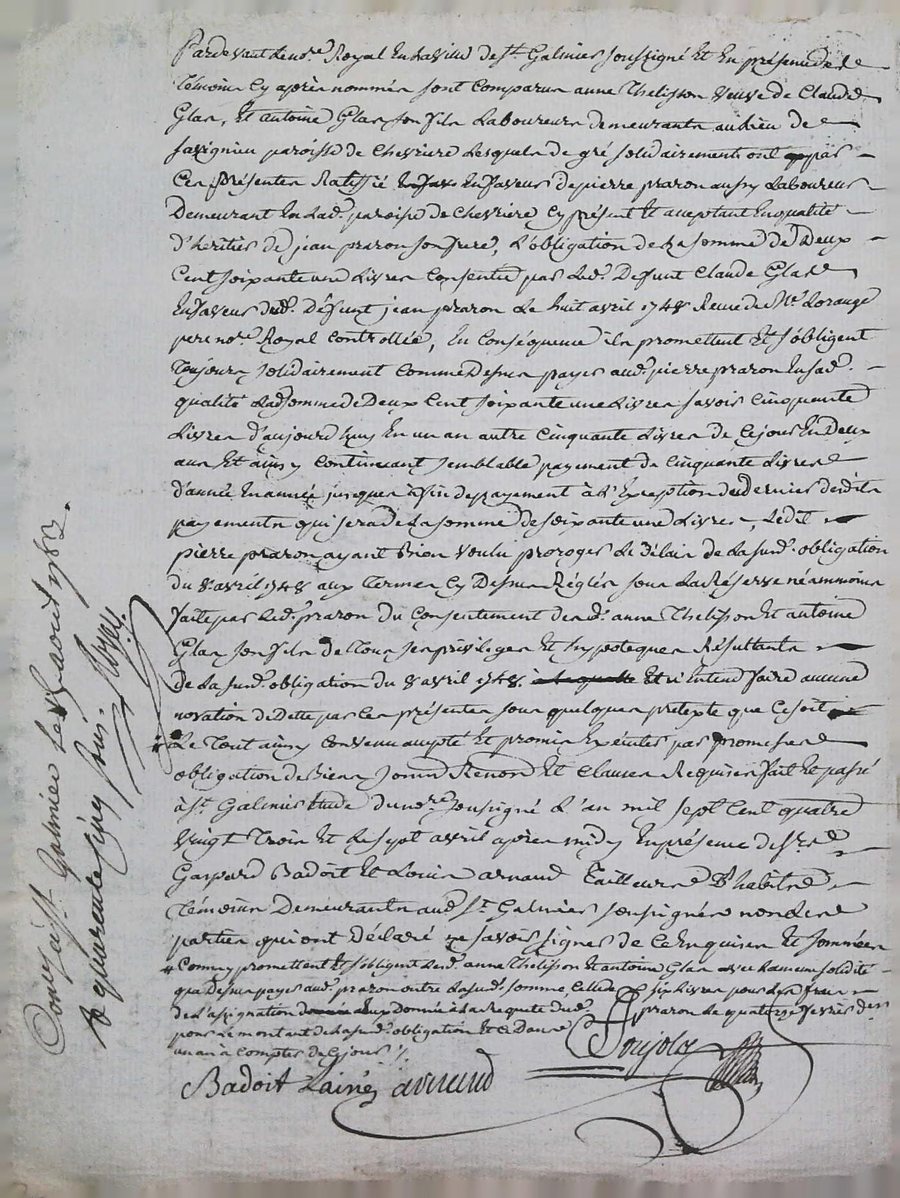 Pardevant le nore. Royal en la ville de st. Galmier soussigné Et En présence de
témoins Cy après nommés sont Comparus anne Thelisson veuve de Claude
Glas, Et antoine Glas son fils Laboureurs demeurants au lieu de
savignieu paroisse de Chevriere Lesquels de gré solidairement ont par
Ces présentes Ratiffié En faveur de pierre prazon aussy Laboureur
Demeurant En Lad. paroisse de Chevriere Cy présent Et acceptant En qualité
d'héritier de jean prazon son frere, L'obligation de La somme de Deux
Cent soixante une Livres Consentie par Led. Deffunt Claude Glas
En faveur dud. Déffunt jean prazon Le huit avril 1748 Reçue de Me. Lorange
pere nore. Royal Controllée, En Conséquence ils promettent Et s'obligent
Toujours solidairement Comme Dessus payer aud. pierre prazon En sad.
qualité Lad. somme de Deux Cent soixante une Livres savoir Cinquante
Livres d'aujourd'huy En un an autre Cinquante Livres de Ce jour En Deux
ans Et ainsy Continuant semblable payement de Cinquante Livres
d'année En année jusques à fin de payement à L'Exception du dernier desdits
payements qui sera de La somme de soixante une Livres, Ledit
pierre prazon ayant Bien voulu proroger Le Délais de La susd. obligation
du 8 avril 1748 aux termes Cy Dessus Réglés sous La Réserve néammoins
faite par Led. prazon du Consentement desd. anne Thelisson Et antoine
Glas son fils de Tous ses privileges Et hypoteques Résultants
de La susd. obligation du 8 avril 1748. Et n'Entend faire aucune
novation de Dette par Ces présentes sous quelque pretexte que Ce soit
Le Tout ainsy Convenu accepté Et promis Exécuter par promesse
obligation de Biens Renond Et Clauses Requises fait Et passé
à st. Galmier Etude du nore. soussigné L'an mil sept Cent quatre
vingt Trois Et Le sept avril après midy En présence de
Gaspard Badoit Et Louis arnaud Tailleurs D'habits
Témoins Demeurants aud. st. Galmier soussignés non Les
parties qui ont Déclaré ne savoir signer de Ce Enquises Et sommées
Comme promettent Et s'obligent Lesd. anne Thelisson Et antoine Glas avec La meme solidité
que Dessus payer aud. prazon outre La susd. somme, Celle de six Livres pour Les frais
de L'assignation Donnée à La requete dud. prazon Le quatre fevrier
pour Le montant de La susd. obligation Et Ce Dans
un an à Compter de Ce jour ./.
Badoit Lainé arnaud Poujols
Con̄. à st. Galmier Le août 1783.
R quarente Cinq sous.